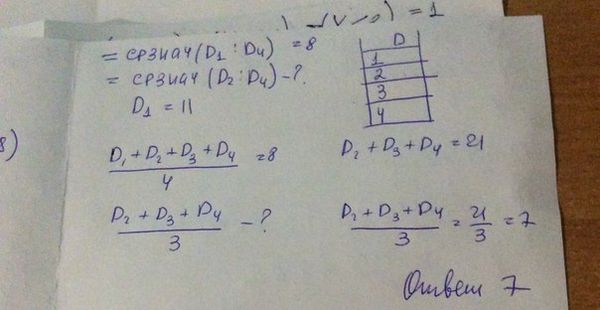 = 1
= срзнач (D₁ : D₄) = 8
= срзнач (D₂ : D₄) - ?
D₁ = 11
D
1
2
3
4
8)
D₁ + D₂ + D₃ + D₄ = 8
4
D₂ + D₃ + D₄ = 21
D₂ + D₃ + D₄ - ?
3
D₂ + D₃ + D₄ = 21 = 7
3 3
Ответ 7